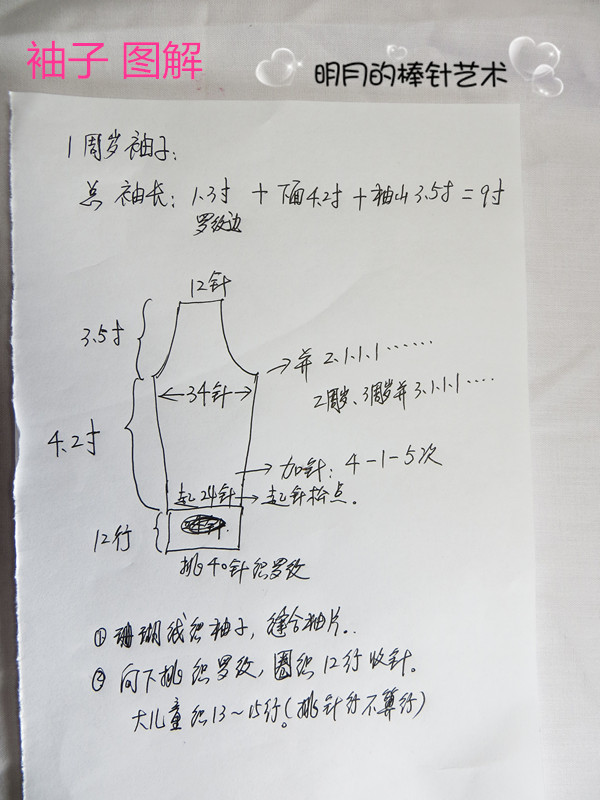 袖子 图解
明月的棒针艺术
1周岁袖子:
总 袖长: 1.3寸 + 下面4.2寸 + 袖山3.5寸 = 9寸
罗纹边
12针
3.5寸
→并 2.1.1.1 ……
2周岁、3周岁并3.1.1.1 ……
←34针→
4.2寸
→加针: 4-1-5次
起24针→起针松点。
12行
挑40针织罗纹
① 珊瑚线织袖子, 缝合袖片..
② 向下挑织罗纹, 圈织12行收针。
大儿童织13~15行。(挑针行不算行)